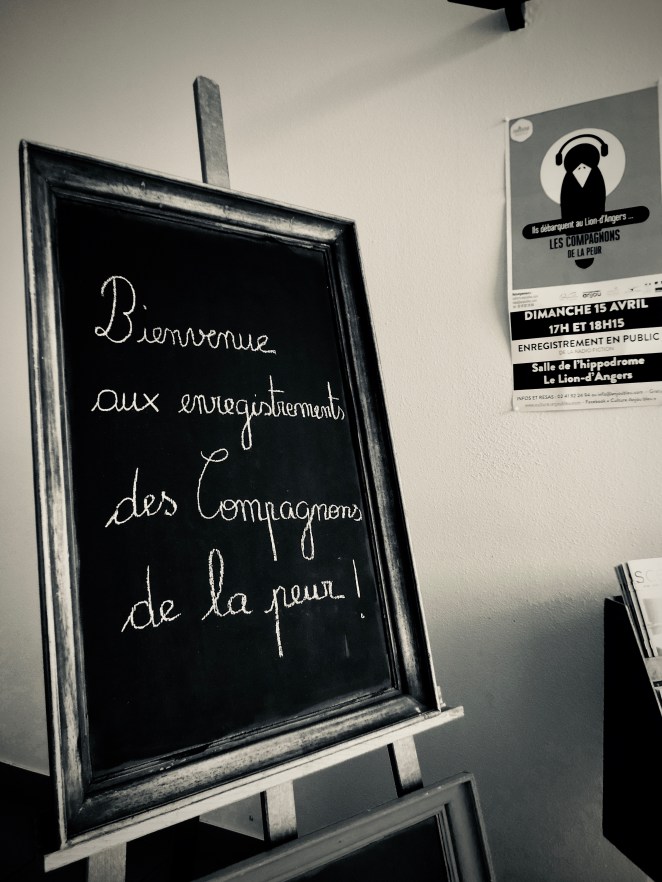 Bienvenue
aux enregistrements
des Compagnons
de la peur !
Ils débarquent au Lion-d'Angers ...
LES COMPAGNONS
DE LA PEUR
anjou
DIMANCHE 15 AVRIL
17H ET 18H15
ENREGISTREMENT EN PUBLIC
DE LA RADIO FICTION
Salle de l'hippodrome
Le Lion-d'Angers
INFOS ET RESAS